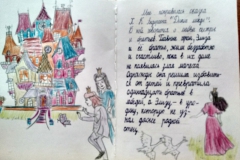 Мне понравилась сказка
Г. Х. Андерсена "Дикие лебеди".
В ней говорится о любви сестры
и братьев. Главные герои, Элиза
и её братья, жили дружно
и счастливо, пока в их доме
не появилась злая мачеха.
Однажды она решила избавить-
ся от детей и превратила
одиннадцать братьев в
лебедей, а Элизу - в уро-
дину, которую не уз-
нал даже родной
отец.